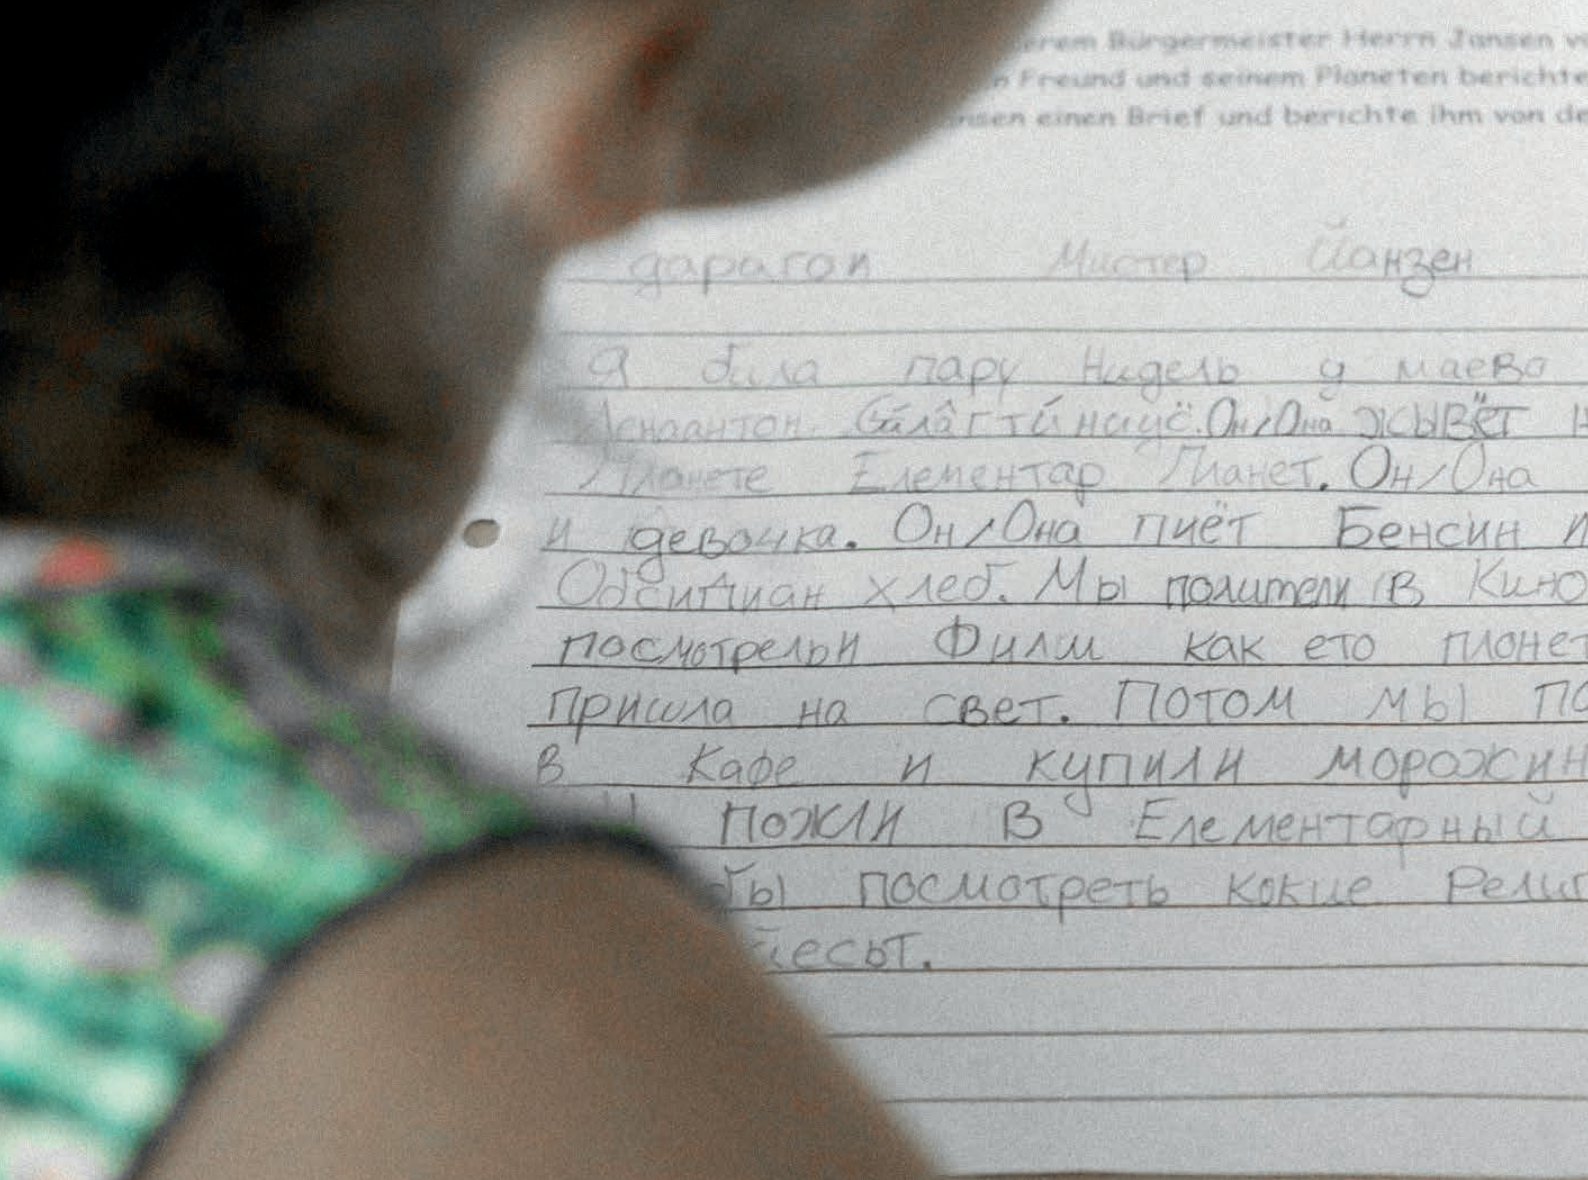 erem Bürgermeister Herrn Jansen
Freund und seinem Planeten berichte
nsen einen Brief und berichte ihm von de
дарагои Мистер Йанзен
Я била пару Нидель у маево
Он/Она жывёт н
Планете Елементар Планет. Он/Она
и девочка. Он/Она пиёт Бенсин и
Обсидиан хлеб. Мы полители в Кино
посмотрельи Филм как ето планет
пришла на свет. Потом мы по
в Кафе и купили морожин
пожли в Елементарный
бы посмотреть кокие Религ
йесьт.